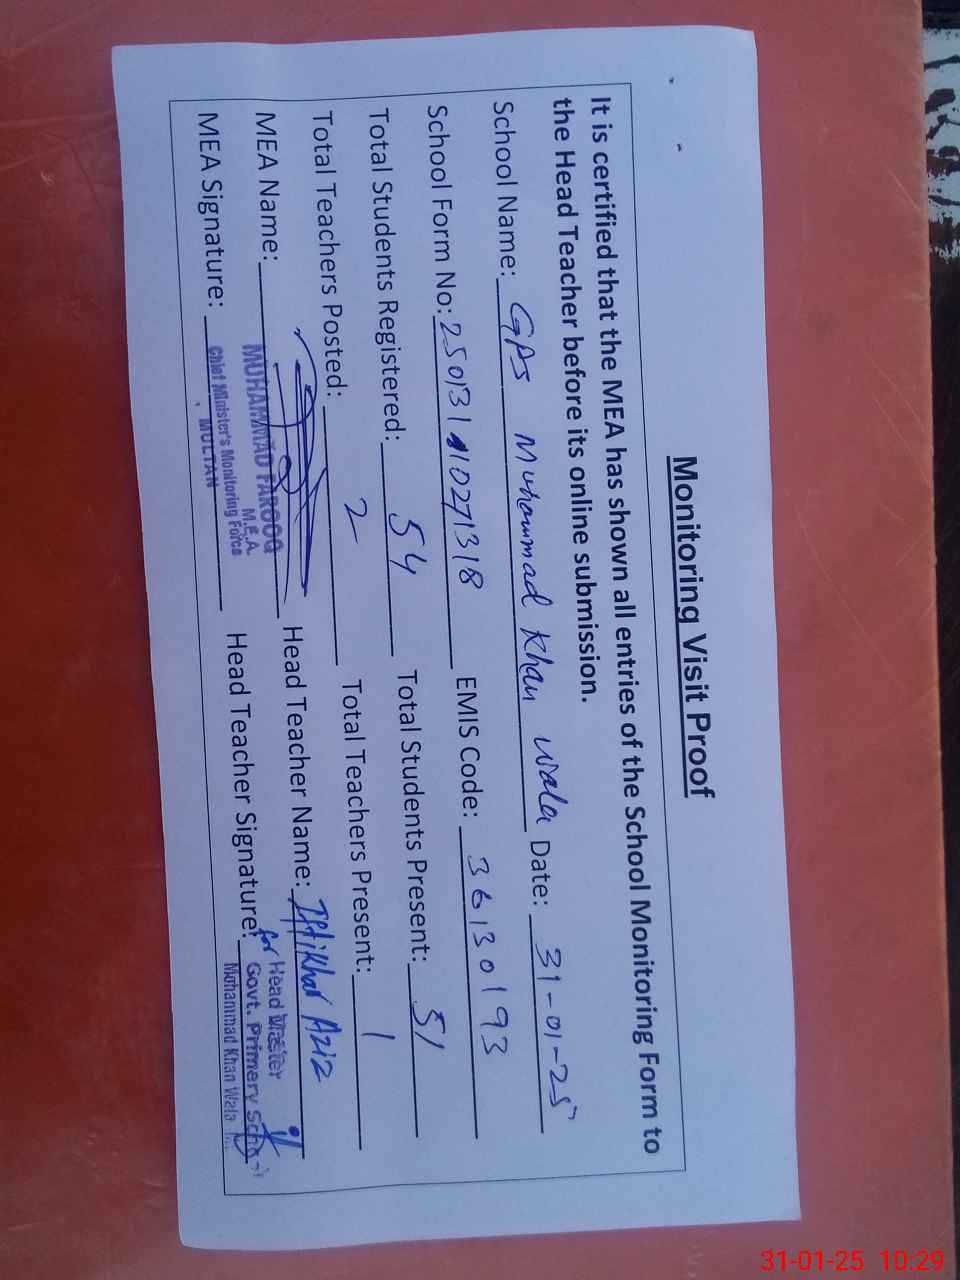 Monitoring Visit Proof
It is certified that the MEA has shown all entries of the School Monitoring Form to
the Head Teacher before its online submission.
School Name: GPS Muhammad Khan wala Date: 31-01-25
School Form No: 250131 10271318 EMIS Code: 36130193
Total Students Registered: 54 Total Students Present: 51
Total Teachers Posted: 2 Total Teachers Present: 1
MEA Name: Head Teacher Name: Iftikhar Aziz
MUHAMMAD FAROOQ
M.E.A.
MEA Signature: Chief Minister's Monitoring Force
MULTAN
Head Teacher Signature: for Head Master
Govt. Primary School
Mohammad Khan Wala
31-01-25 10:29